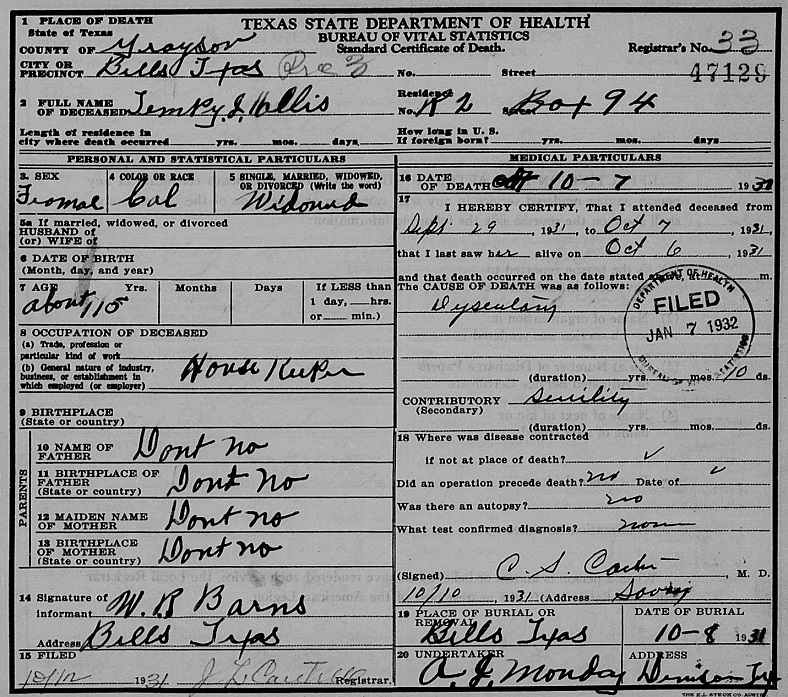 TEXAS STATE DEPARTMENT OF HEALTH
BUREAU OF VITAL STATISTICS
Standard Certificate of Death.
1 PLACE OF DEATH
State of Texas
COUNTY OF Grayson
Registrar's No. 33
CITY OR PRECINCT Bells Texas No. Street
47129
2 FULL NAME OF DECEASED Tempy J. Hollis
Residence No. R 2 Street Box 94
Length of residence in city where death occurred yrs. mos. days
How long in U. S. If foreign born? yrs. mos. days
PERSONAL AND STATISTICAL PARTICULARS
3. SEX Fromal
4 COLOR OR RACE Col
5 SINGLE, MARRIED, WIDOWED, OR DIVORCED (Write the word) Widowed
5a If married, widowed, or divorced
HUSBAND of
(or) WIFE of
6 DATE OF BIRTH
(Month, day, and year)
7 AGE Yrs. Months Days If LESS than
about 115 1 day, hrs.
or min.)
8 OCCUPATION OF DECEASED
(a) Trade, profession or
particular kind of work
(b) General nature of industry,
business, or establishment in
which employed (or employer) House Keeper
9 BIRTHPLACE
(State or country)
PARENTS
10 NAME OF FATHER Dont no
11 BIRTHPLACE OF FATHER (State or country) Dont no
12 MAIDEN NAME OF MOTHER Dont no
13 BIRTHPLACE OF MOTHER (State or country) Dont no
14 Signature of informant W. R Barns
Address Bells Texas
15 FILED 10/12 1931 Registrar.
MEDICAL PARTICULARS
16 DATE OF DEATH 10-7 1931
17 I HEREBY CERTIFY, That I attended deceased from
Sept 29, 1931, to Oct 7, 1931,
that I last saw her alive on Oct 6 1931
and that death occurred on the date stated above, at m.
The CAUSE OF DEATH was as follows:
Dysentary
DEPARTMENT OF HEALTH
FILED
JAN 7 1932
BUREAU OF VITAL STATISTICS
(duration) yrs. mos. 10 ds.
CONTRIBUTORY Senility
(Secondary)
(duration) yrs. mos. ds.
18 Where was disease contracted
if not at place of death?
Did an operation precede death? no Date of
Was there an autopsy? no
What test confirmed diagnosis? none
(Signed) C. S. Carter, M. D.
10/10, 1931 (Address Savoy
19 PLACE OF BURIAL OR REMOVAL Bells Texas
DATE OF BURIAL 10-8 1931
20 UNDERTAKER A. J. Monday
ADDRESS Denison Tex
THE E.L. STECK CO. AUSTIN